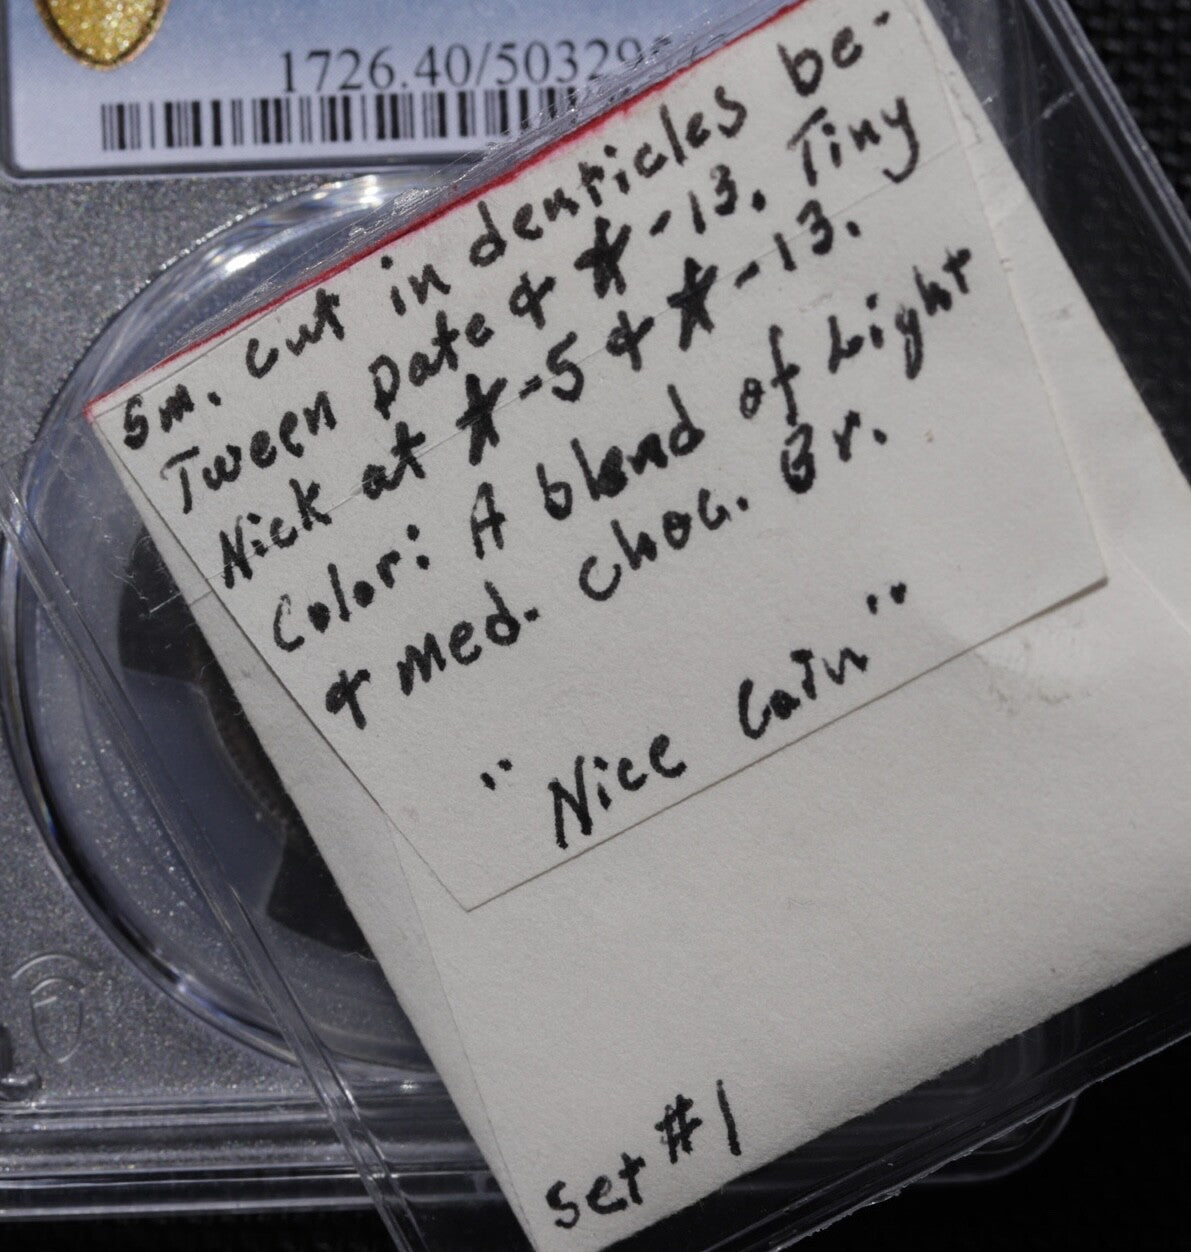 1726.40/50329
sm. cut in denticles be-
Tween Date & ★-13. Tiny
Nick at ★-5 & ★-13.
Color: A blend of Light
& med. choc. Br.
"Nice Coin"
Set #1